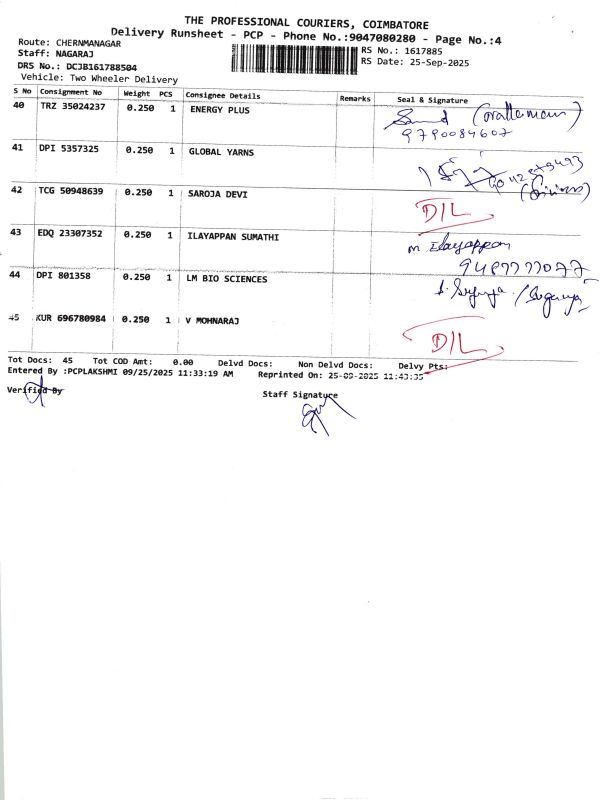 THE PROFESSIONAL COURIERS, COIMBATORE
Delivery Runsheet - PCP - Phone No.:9047080280 - Page No.:4
Route: CHERNMANAGAR
Staff: NAGARAJ
DRS No.: DCJB161788504
Vehicle: Two Wheeler Delivery
RS No.: 1617885
RS Date: 25-Sep-2025
S No Consignment No Weight PCS Consignee Details Remarks Seal & Signature
40 TRZ 35024237 0.250 1 ENERGY PLUS
9790084607
41 DPI 5357325 0.250 1 GLOBAL YARNS
42 TCG 50948639 0.250 1 SAROJA DEVI D/L
43 EDQ 23307352 0.250 1 ILAYAPPAN SUMATHI M Elayappan
44 DPI 801358 0.250 1 LM BIO SCIENCES
45 KUR 696780984 0.250 1 V MOHNARAJ D/L
Tot Docs: 45 Tot COD Amt: 0.00 Delvd Docs: Non Delvd Docs: Delvy Pts:
Entered By :PCPLAKSHMI 09/25/2025 11:33:19 AM Reprinted On: 25-09-2025 11:43:35
Verified By
Staff Signature